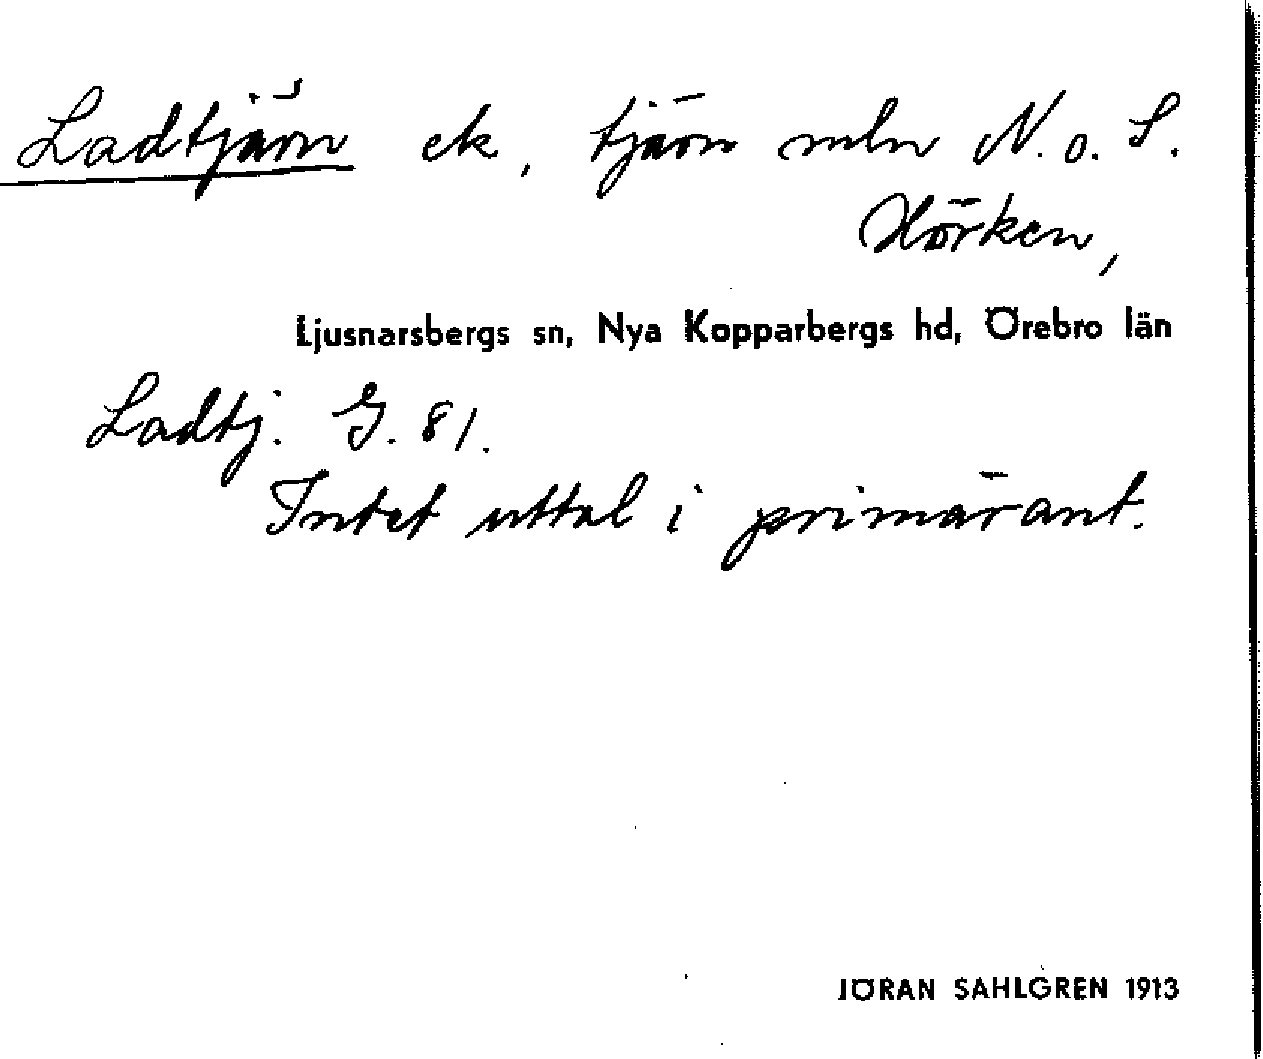 Ladtjärn ek, tjärn mln N. o. S.
Hörken,
Ljusnarsbergs sn, Nya Kopparbergs hd, Örebro län
Ladtj. G. 81.
Intet uttal i primärant.
JÖRAN SAHLGREN 1913